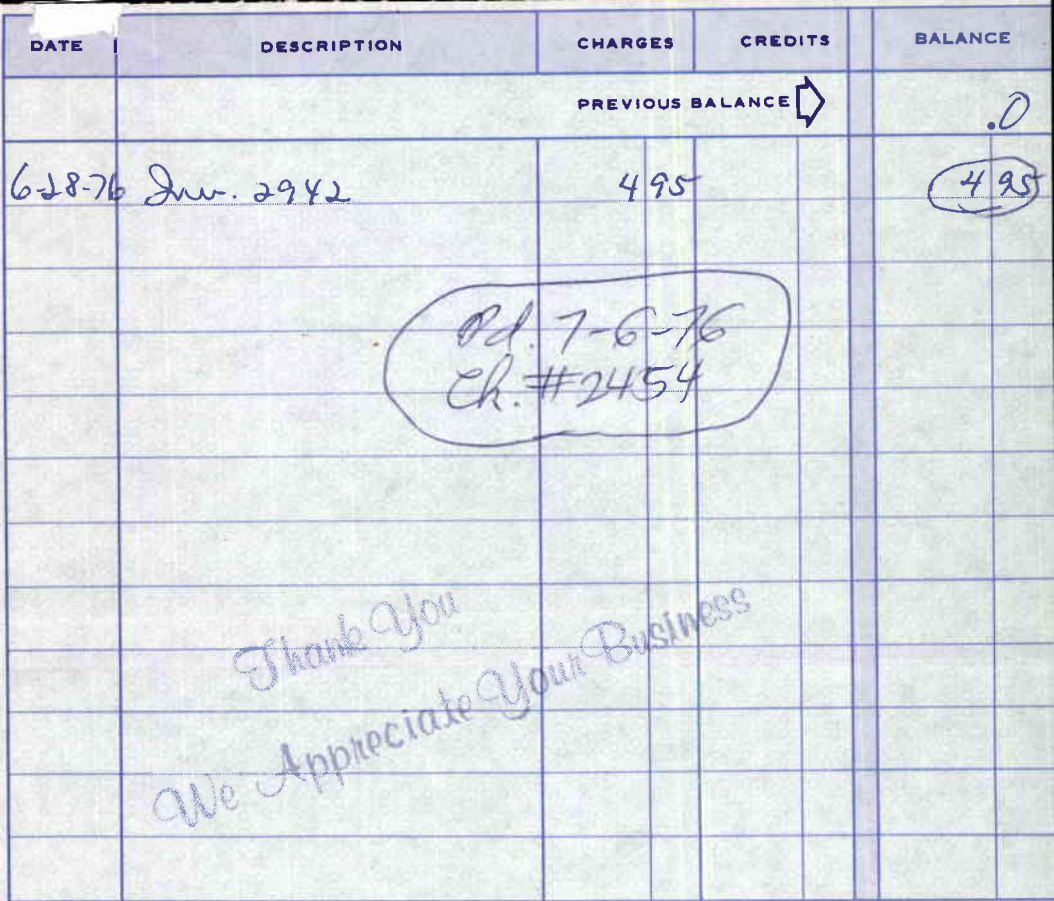 DATE DESCRIPTION CHARGES CREDITS BALANCE
PREVIOUS BALANCE .0
6-28-76 Inv. 2942 4 95 4 95
Pd. 7-6-76
Ck. #2454
Thank You
We Appreciate Your Business